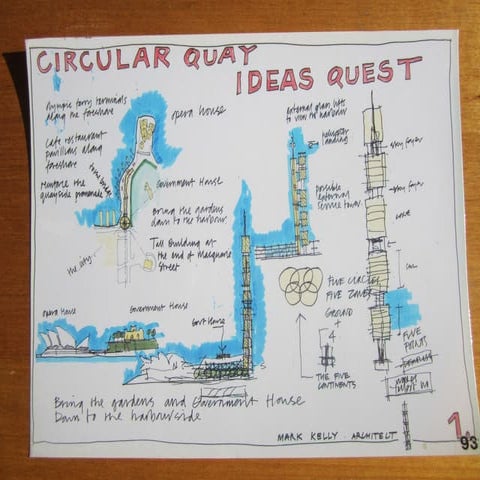 CIRCULAR QUAY
IDEAS QUEST
ferry terminals
along the foreshore
opera House
Cafe restaurant
pavilions along
foreshore
Government House
Bring the gardens
down to the harbour.
Tall Building at
the end of Macquarie
Street
the city.
external glass lifts
to view the harbour
helicopter
landing
possible
external
service tower.
sky foyer
sky foyer
FIVE CIRCLES
FIVE ZONES
GROUND
+
4
THE FIVE
CONTINENTS
FIVE
opera House
Government House
Govt House
Bring the gardens and Government House
Down to the harbourside
MARK KELLY . ARCHITECT
1.
93